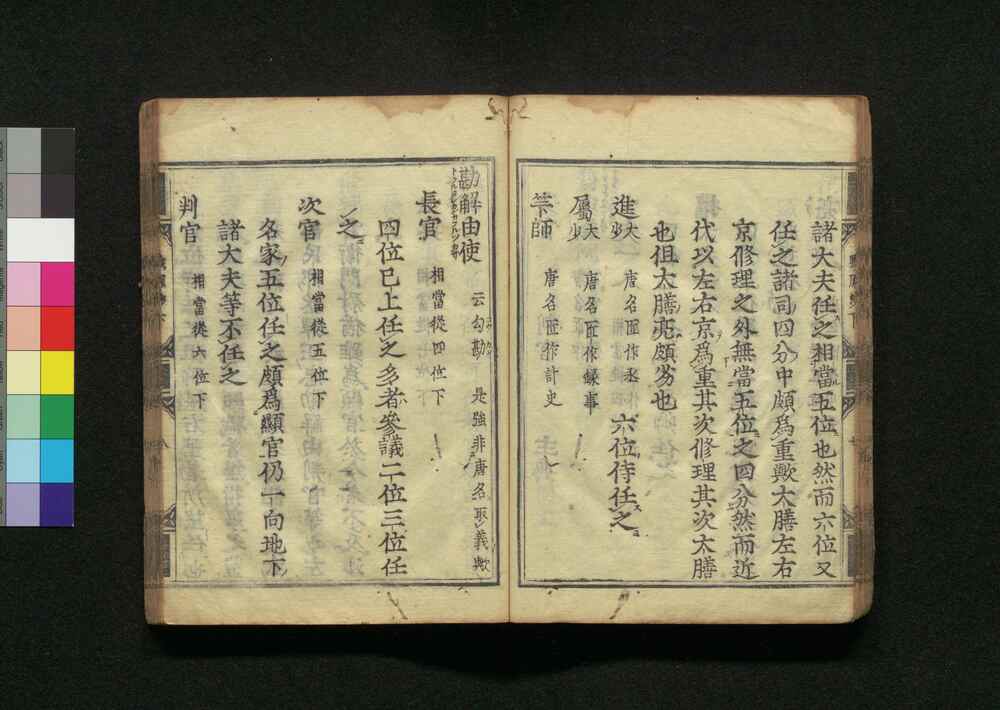 諸大夫任之相當五位也然而六位又
任之諸司四分中頗爲重歟大膳左右
京修理之外無當五位之四分然而近
代以左右京爲重其次修理其次太膳
也但太膳亮頗劣也
進大少 唐名匠作丞 六位侍任之
屬大少 唐名匠作録事
筭師 唐名匠作計史
勘解由使 云勾勘 是強非唐名取義歟
長官 相當從四位下
四位已上任之多者參議二位三位任
之
次官 相當從五位下
名家五位任之頗爲顯官仍一向地下
諸大夫等不任之
判官 相當從六位下